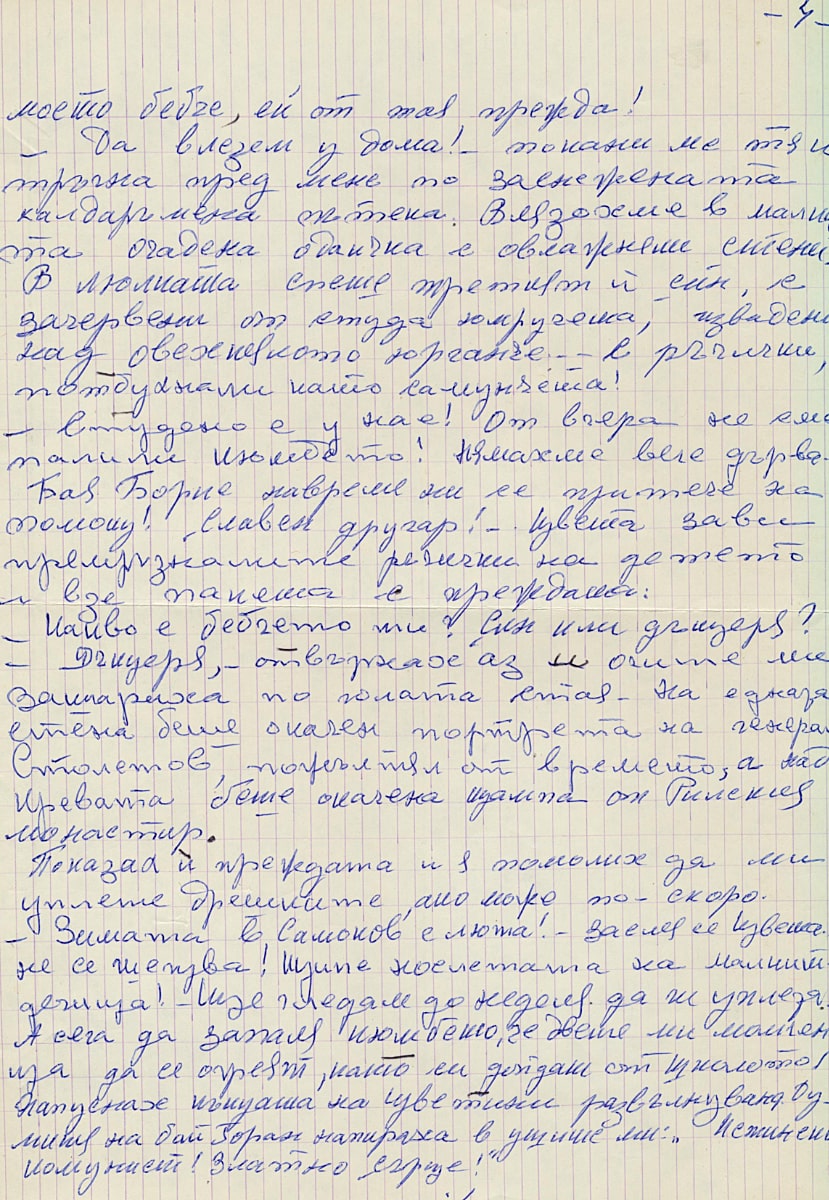 - 4 -
моето бебче, ей от тая прежда!
– Да влезем у дома! – покани ме тя и
тръгна пред мене по заснежената
калдаръмена пътека. Влязохме в малка
та очадена одаичка с овлажнели стени.
В люлката спеше третият ѝ син, с
зачервени от студа юмручета, извадени
над овехтялото юрганче – с ръчички,
потпухнали като самунчета!
– Студено е у нас! От вчера не сме
палили кюмбето! Нямахме вече дърва.
Бая Борне навреме ни се притече на
помощ! Славен другар! – Цвета зави
премръзналите ръчички на детето
и взе пакета с преждата:
– Какво е бебчето ти? Син или дъщеря?
– Дъщеря, – отвърнах аз и очите ми
зашариха по голата стая. На едната
стена беше окачен портрета на генерал
Столетов, пожълтял от времето, а над
кревата беше окачена щампа от Рилския
монастир.
Показах ѝ преждата и я помолих да ми
уплете дрешките, ако може по-скоро.
– Зимата в Самоков е люта! – засмя се Цвета.
не се шегува! Щипе нослетата на малките
дечица! – Ще гледам до неделя да ги уплета.
А сега да запаля кюмбето, че двете ми момчен
ца да се огреят, като си дойдат от школото!
Напуснах къщата на Цветини развълнувана. Ду-
мите на бай Горан напираха в ушите ми: „Истински
комунист! Златно сърце!"